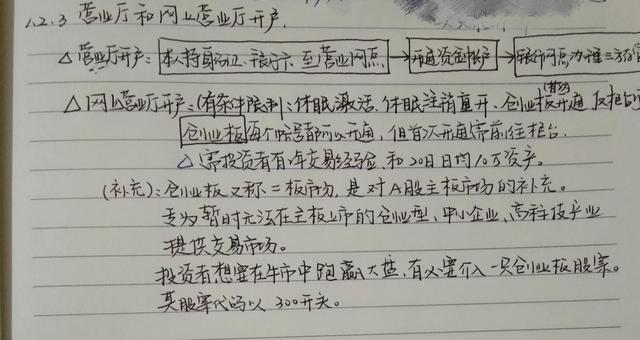 1.2.3 营业厅和网上营业厅开户.
△ 营业厅开户: 本人持身份证、银行卡、至营业网点 → 开通资金账户 → 银行网点办理三方
△ 网上营业厅开户: (有条件限制): 休眠激活、休眠注销重开、创业板开通
创业板每个帐号都可以开通, 但首次开通需前往柜台.
△ 需投资者有2年交易经验 和 20日日均10万资产.
(补充): 创业板又称二板市场, 是对A股主板市场的补充。
专为暂时无法在主板上市的创业型、中小企业、高科技产业
提供交易市场。
投资者想要在牛市中跑赢大盘, 有必要介入一只创业板股票。
其股票代码以 300开头。